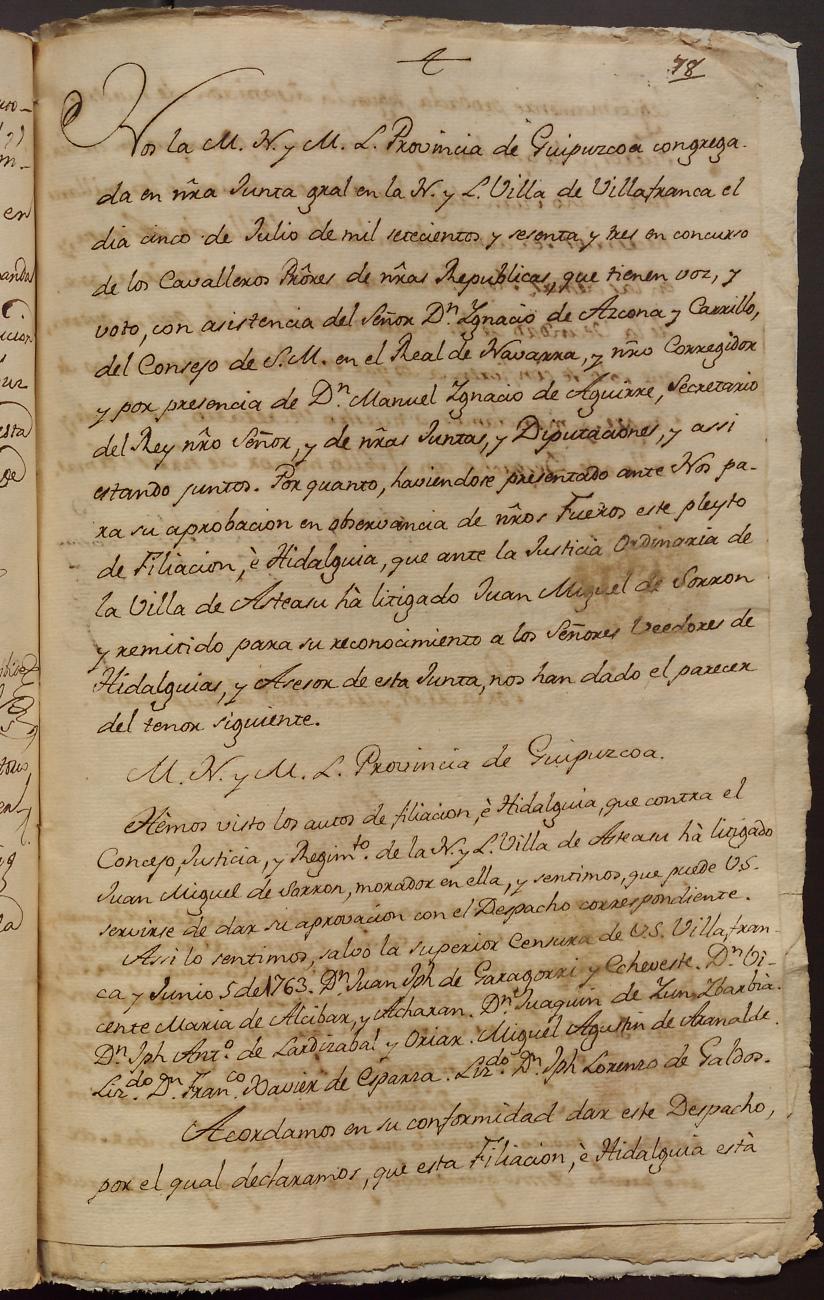 78
Nos la M. N. y M. L. Provincia de Guipuzcoa congrega-
da en nr̃a Junta gral en la N. y L. Villa de Villafranca el
dia cinco de Julio de mil setecientos y sesenta y tres en concurso
de los Cavalleros Prõres de nr̃as Republicas, que tienen voz, y
voto, con asistencia del Señor Dn. Ygnacio de Azcona y Carrillo,
del Consejo de S. M. en el Real de Navarra, y nr̃o Corregidor
y por presencia de Dn. Manuel Ygnacio de Aguirre, Secretario
del Rey nr̃o Señor, y de nr̃as Juntas, y Diputaciones, y assi
estando juntos. Por quanto, haviendose presentado ante Nos pa-
ra su aprobacion en observancia de nr̃os Fueros este pleyto
de Filiacion, è Hidalguia, que ante la Justicia Ordinaria de
la Villa de Asteasu hà litigado Juan Miguel de Sorron
y remitido para su reconocimiento a los Señores Veedores de
Hidalguias, y Asesor de esta Junta, nos han dado el parecer
del tenor siguiente.
M. N. y M. L. Provincia de Guipuzcoa.
Hèmos visto los autos de filiacion, è Hidalguia, que contra el
Concejo, Justicia, y Regimto. de la N. y L. Villa de Asteasu hà litigado
Juan Miguel de Sorron, morador en ella, y sentimos, que puede V.S.
servirse de dar su aprovacion con el Despacho correspondiente.
Assi lo sentimos, salvo la superior Censura de V.S. Villafran-
ca y Junio 5 de 1763. Dn. Juan Jph de Garagorri y Echeveste. Dn. Vi-
cente Maria de Alcibar, y Acharan. Dn. Juaquin de Zun Zbarbia.
Dn. Jph Anto. de Lardizabal y Oriar. Miguel Agustin de Aranalde.
Lizdo. Dn. Franco. Xavier de Esparza. Lizdo. Dn. Jph Lorenzo de Galdos.
Acordamos en su conformidad dar este Despacho,
por el qual declaramos, que esta Filiacion, è Hidalguia està